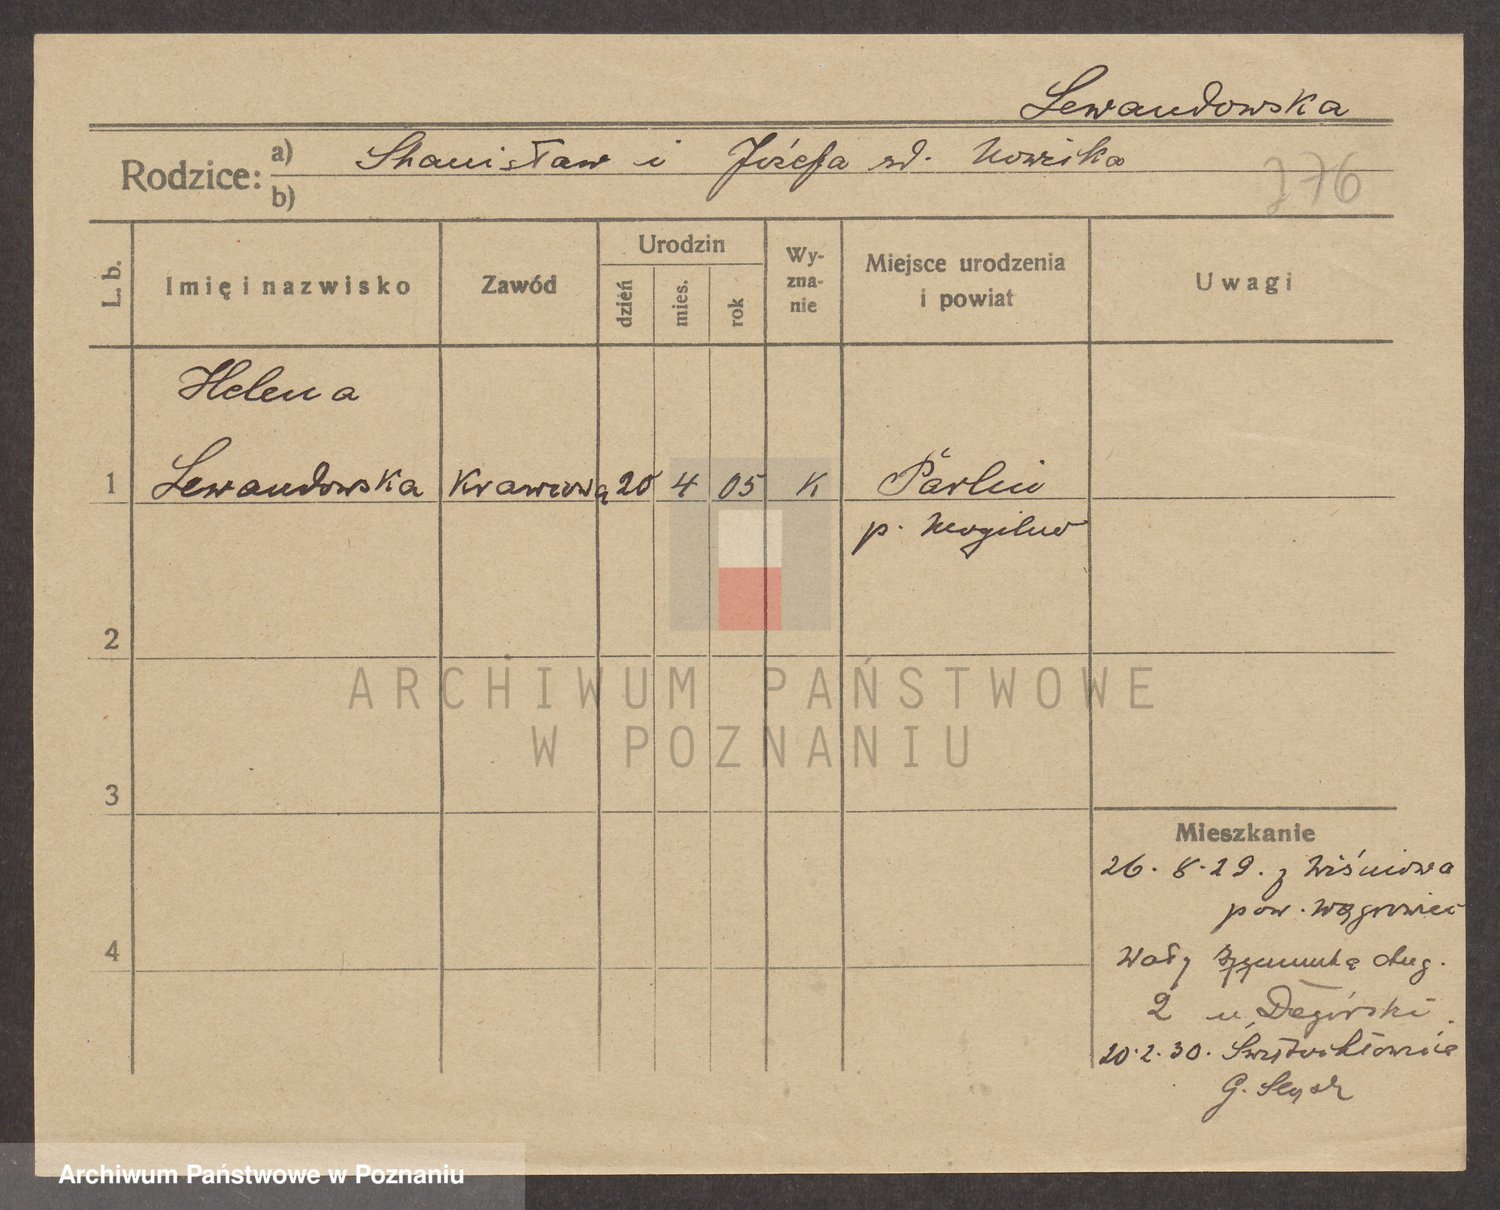 Lewandowska
Rodzice: a) Stanisław i Józefa zd. Nowicka
b)
376
L. b.
Imię i nazwisko
Zawód
Urodzin
dzień
mies.
rok
Wy-
zna-
nie
Miejsce urodzenia
i powiat
Uwagi
Helena
1 Lewandowska Krawcowa 20 4 05 K Parlin
p. Mogilno
2
3
4
ARCHIWUM PAŃSTWOWE
W POZNANIU
Mieszkanie
26.8.29. z Wiśniowa
pow. Wągrowiec
Wały Zygmunta Aug.
2 u
20.2.30. Świętochłowice
G.
Archiwum Państwowe w Poznaniu